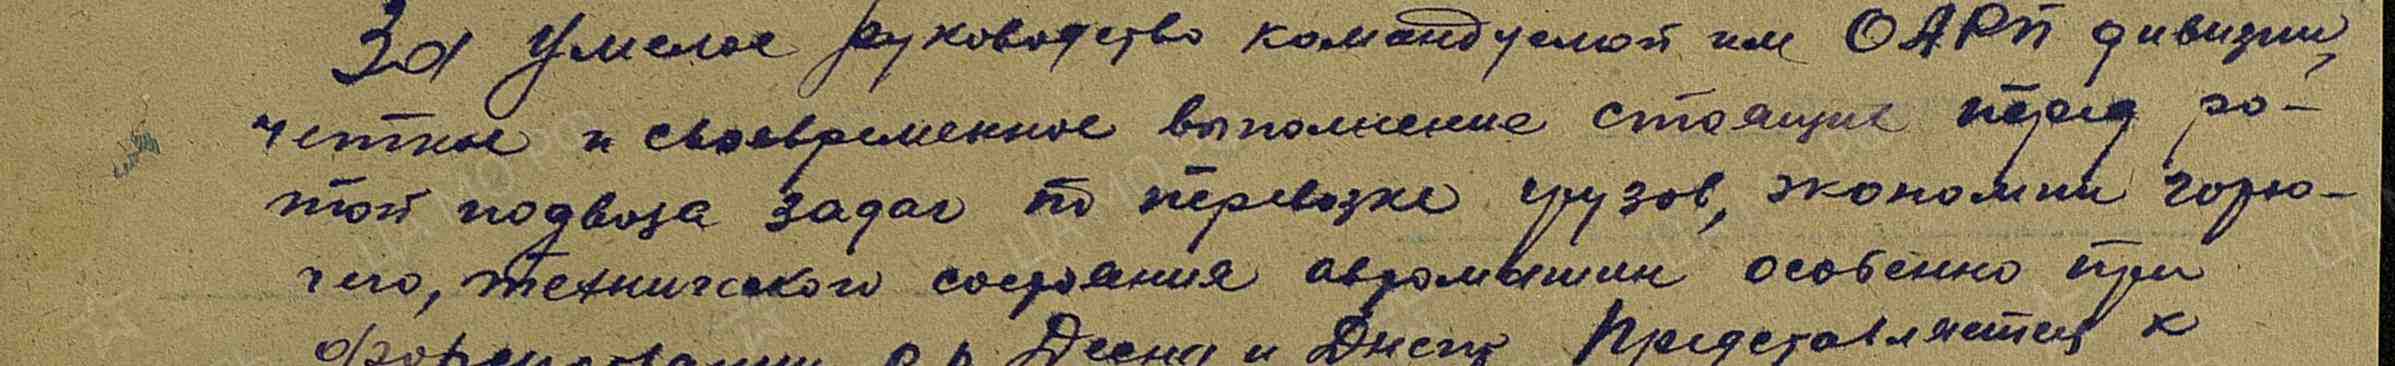 За умелое руководство командуемой им ОАРП дивизии,
четкое и своевременное выполнение стоящих перед ро-
той подвоза задач по перевозке грузов, экономии горю-
чего, технического состояния автомашин особенно при
форсировании р.р. Десна и Днепр Представляется к